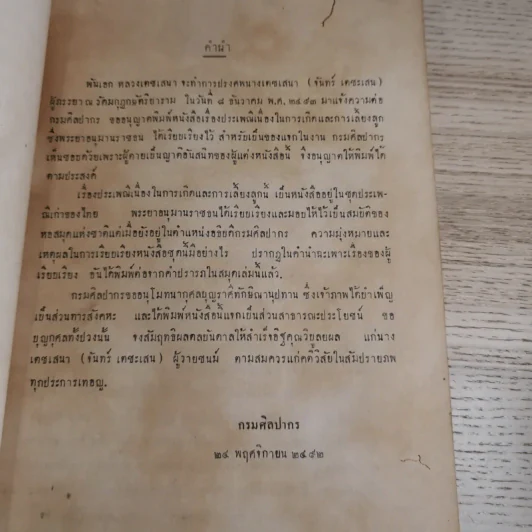 คำนำ
พันเอก หลวงเดชเสนา จะทำการปรงศพนางเดชเสนา (จันทร์ เดชะเสน)
ผู้ภรรยา ณ วัดมกุฎกษัตริยาราม ในวันที่ ๘ ธันวาคม พ.ศ. ๒๔๙๒ มาแจ้งความต่อ
กรมศิลปากร ขออนุญาตพิมพ์หนังสือเรื่องประเพณีเนื่องในการเกิดและการเลี้ยงลูก
ซึ่งพระยาอนุมานราชธน ได้เรียบเรียงไว้ สำหรับเป็นของแจกในงาน กรมศิลปากร
เห็นชอบด้วยเพราะผู้ตายเป็นญาติอันสนิทของผู้แต่งหนังสือนี้ จึงอนุญาตให้พิมพ์ได้
ตามประสงค์
เรื่องประเพณีเนื่องในการเกิดและการเลี้ยงลูกนี้ เป็นหนังสืออยู่ในชุดประเพ-
ณีเก่าของไทย พระยาอนุมานราชธนได้เรียบเรียงและมอบให้ไว้เป็นสมบัติของ
หอสมุดแห่งชาติแต่เมื่อยังอยู่ในตำแหน่งอธิบดีกรมศิลปากร ความมุ่งหมายและ
เหตุผลในการเรียบเรียงหนังสือชุดนี้มีอย่างไร ปรากฏในคำนำฉะเพาะเรื่องของผู้
เรียบเรียง อันได้พิมพ์ต่อจากคำปรารภในสมุดเล่มนี้แล้ว.
กรมศิลปากรขออนุโมทนากุศลบุญราศีทักษิณานุปทาน ซึ่งเจ้าภาพได้บำเพ็ญ
เป็นส่วนการสังคหะ และได้พิมพ์หนังสือนี้แจกเป็นส่วนสาธารณะประโยชน์ ขอ
บุญกุศลทั้งปวงนั้น จงสัมฤทธิผลดลบันดาลให้สำเร็จอิฐคุณวิบูลยผล แก่นาง
เดชเสนา (จันทร์ เดชะเสน) ผู้วายชนม์ ตามสมควรแก่คติวิสัยในสัมปรายภพ
ทุกประการเทอญ.
กรมศิลปากร
๒๔ พฤศจิกายน ๒๔๙๒